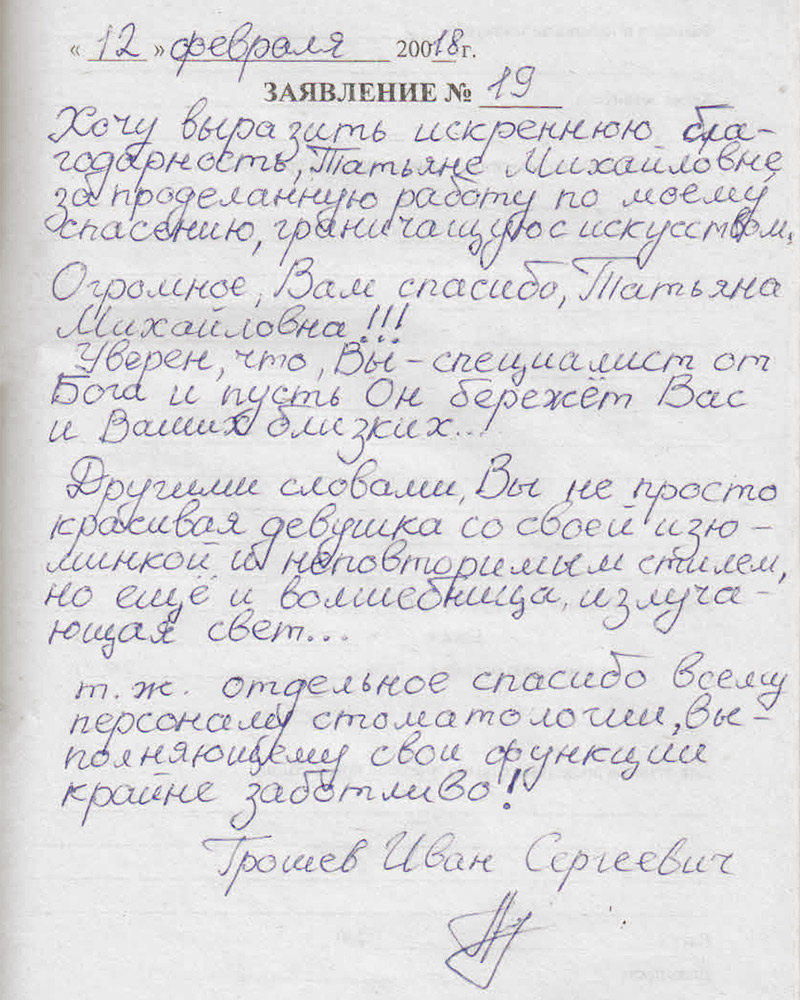 « 12 » февраля 20018 г.
ЗАЯВЛЕНИЕ № 19
Хочу выразить искреннюю бла-
годарность, Татьяне Михайловне,
за проделанную работу по моему
спасению, граничащую с искусством.
Огромное, Вам спасибо, Татьяна
Михайловна!!!
Уверен, что, Вы – специалист от
Бога и пусть Он бережёт Вас
и Ваших близких...
Другими словами, Вы не просто
красивая девушка со своей изю-
минкой и неповторимым стилем,
но ещё и волшебница, излуча-
ющая свет...
т.ж. отдельное спасибо всему
персоналу стоматологии, вы-
полняющему свои функции
крайне заботливо!
Грошев Иван Сергеевич